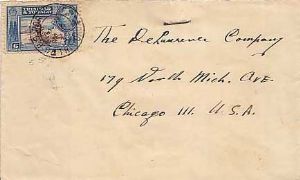 TRINIDAD
& TOBAGO
6
The DeLaurence Company
179 North Mich. Ave.
Chicago Ill. U.S.A.